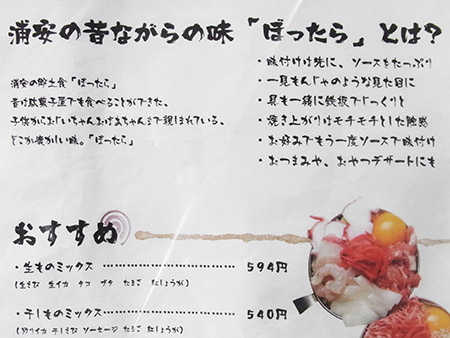 浦安の昔ながらの味「ぼったら」とは?
浦安の郷土食「ぼったら」
昔は駄菓子屋でも食べることができた、
子供からおじいちゃんおばあちゃんまで親しまれている、
どこか懐かしい味。「ぼったら」
・味付けは先に、ソースをたっぷり
・一見もんじゃのような見た目に
・具も一緒に鉄板でじっくりと
・焼き上がりはモチモチとした触感
・お好みでもう一度ソースで味付け
・おつまみや、おやつデザートにも
おすすめ
・生ものミックス ………………………… 594円
(生えび 生イカ タコ ブタ たまご 紅しょうが)
・干しものミックス ………………………… 540円
(切りイカ 干しえび ソーセージ たまご 紅しょうが)